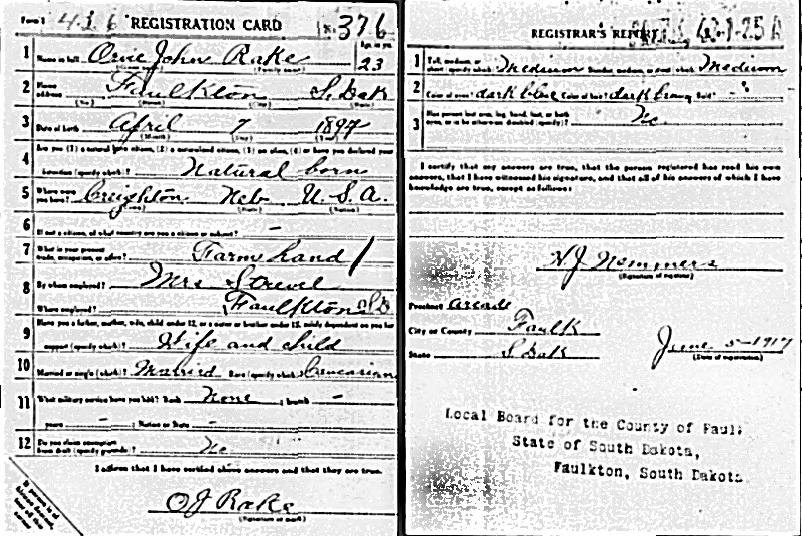 Form 1 436 REGISTRATION CARD No. 376
1 Name in full Orvie John Rake Age, in yrs. 23
(Given name) (Family name)
2 Home address Faulkton S. Dak
(No.) (Street) (City) (State)
3 Date of birth April 7 1897
(Month) (Day) (Year)
4 Are you (1) a natural born citizen, (2) a naturalized citizen, (3) an alien, (4) or have you declared your
intention (specify which)? Natural born
5 Where were you born? Creighton Neb U.S.A.
(Town) (State) (Nation)
6 If not a citizen, of what country are you a citizen or subject? -
7 What is your present trade, occupation, or office? Farm hand
8 By whom employed? Mrs Strevel
Where employed? Faulkton SD
9 Have you a father, mother, wife, child under 12, or a sister or brother under 12, solely dependent on you for
support (specify which)? Wife and child
10 Married or single (which)? Married Race (specify which)? Caucasian
11 What military service have you had? Rank None ; branch -
years - ; Nation or State -
12 Do you claim exemption from draft (specify grounds)? No
I affirm that I have verified above answers and that they are true.
O J Rake
(Signature or mark)
REGISTRAR'S REPORT
1 Tall, medium, or short (specify which)? Medium Slender, medium, or stout (which)? Medium
2 Color of eyes? dark blue Color of hair? dark brown Bald? -
3 Has person lost arm, leg, hand, foot, or both eyes, or is he otherwise disabled (specify)? No
I certify that my answers are true, that the person registered has read his own
answers, that I have witnessed his signature, and that all of his answers of which I have
knowledge are true, except as follows:
H J Nemmers
(Signature of registrar)
Precinct Arcade
City or County Faulk
State S Dak June 5-1917
(Date of registration)
Local Board for the County of Faul
State of South Dakota,
Faulkton, South Dakota